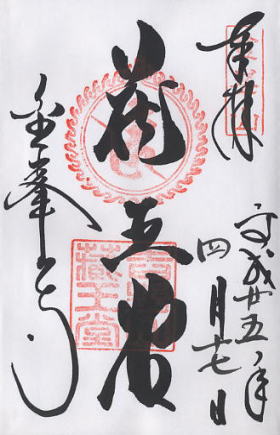 奉拝
平成廿五年
四月十七日
蔵王堂
藏王堂
金峯山寺